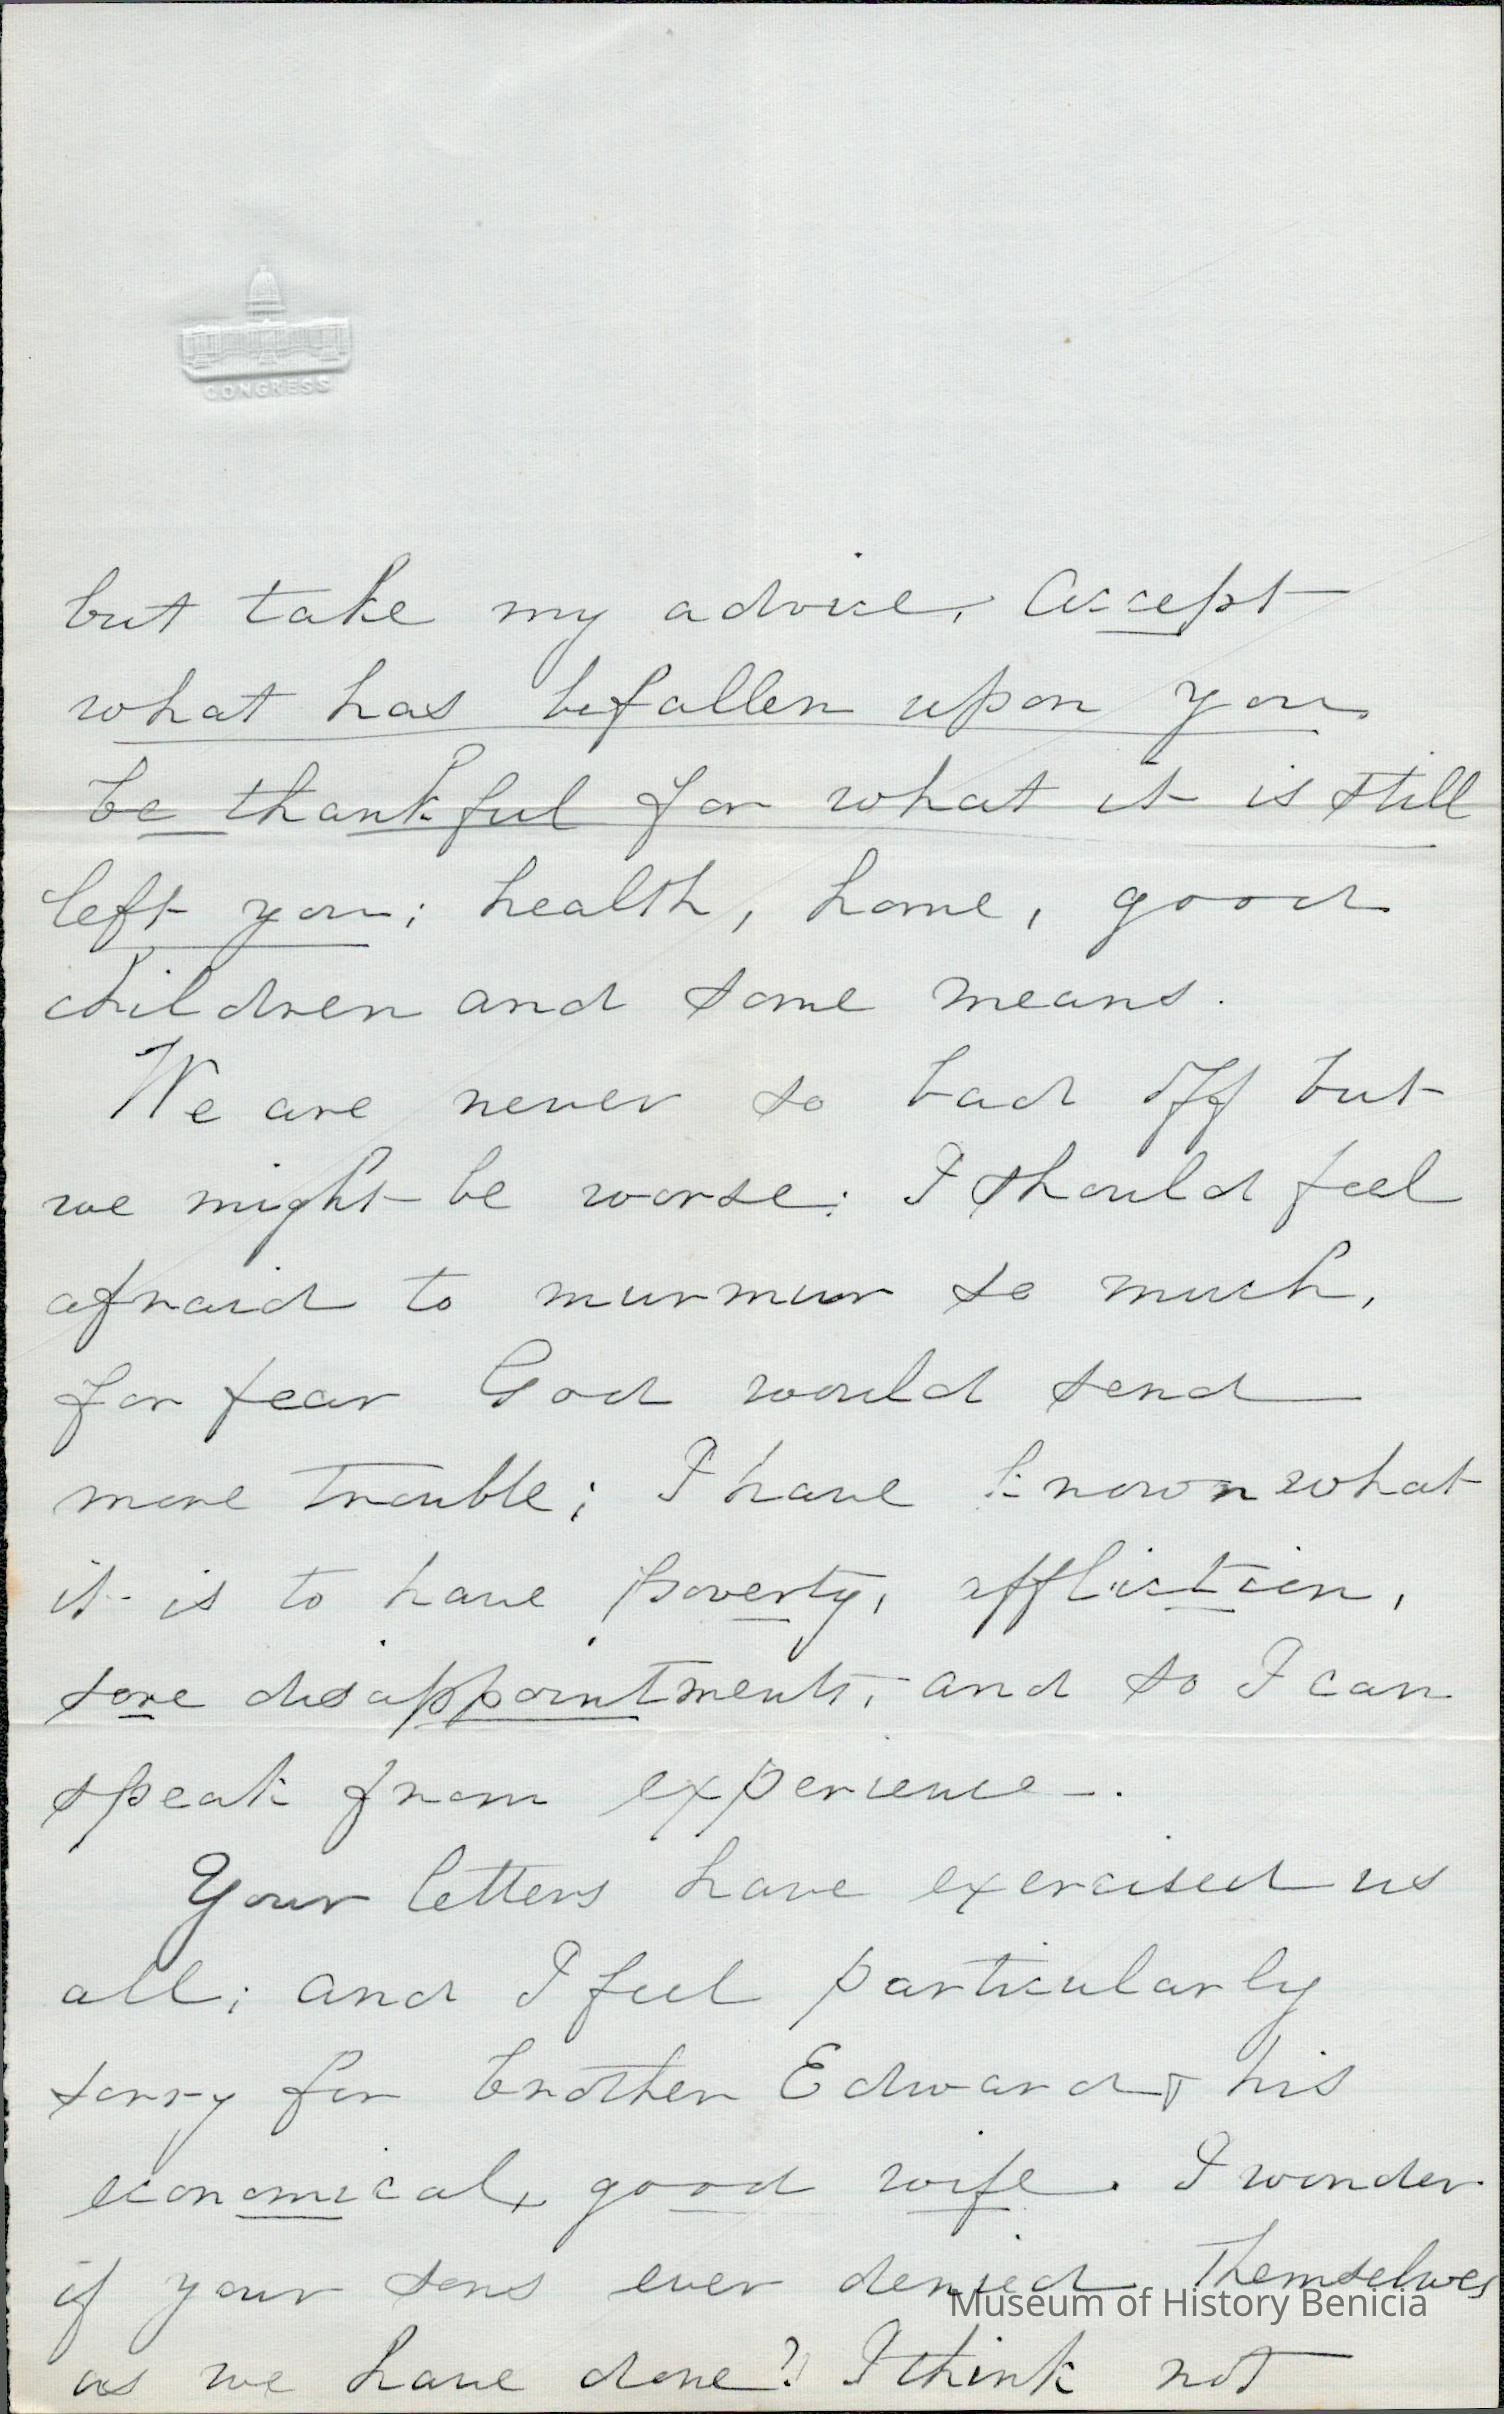 CONGRESS
but take my advice, Accept
what has befallen upon you
be thankful for what it is still
left you; health, home, good
children and some means.
We are never so bad off but
we might be worse: I should feel
afraid to murmur so much,
for fear God would send
more trouble; I have known what
it is to have poverty, affliction,
sore disappointments, and so I can
speak from experience.
Your letters have exercised us
all; and I feel particularly
sorry for brother Edward & his
economical, good wife. I wonder
if your sons ever denied themselves
Museum of History Benicia
as we have done? I think not